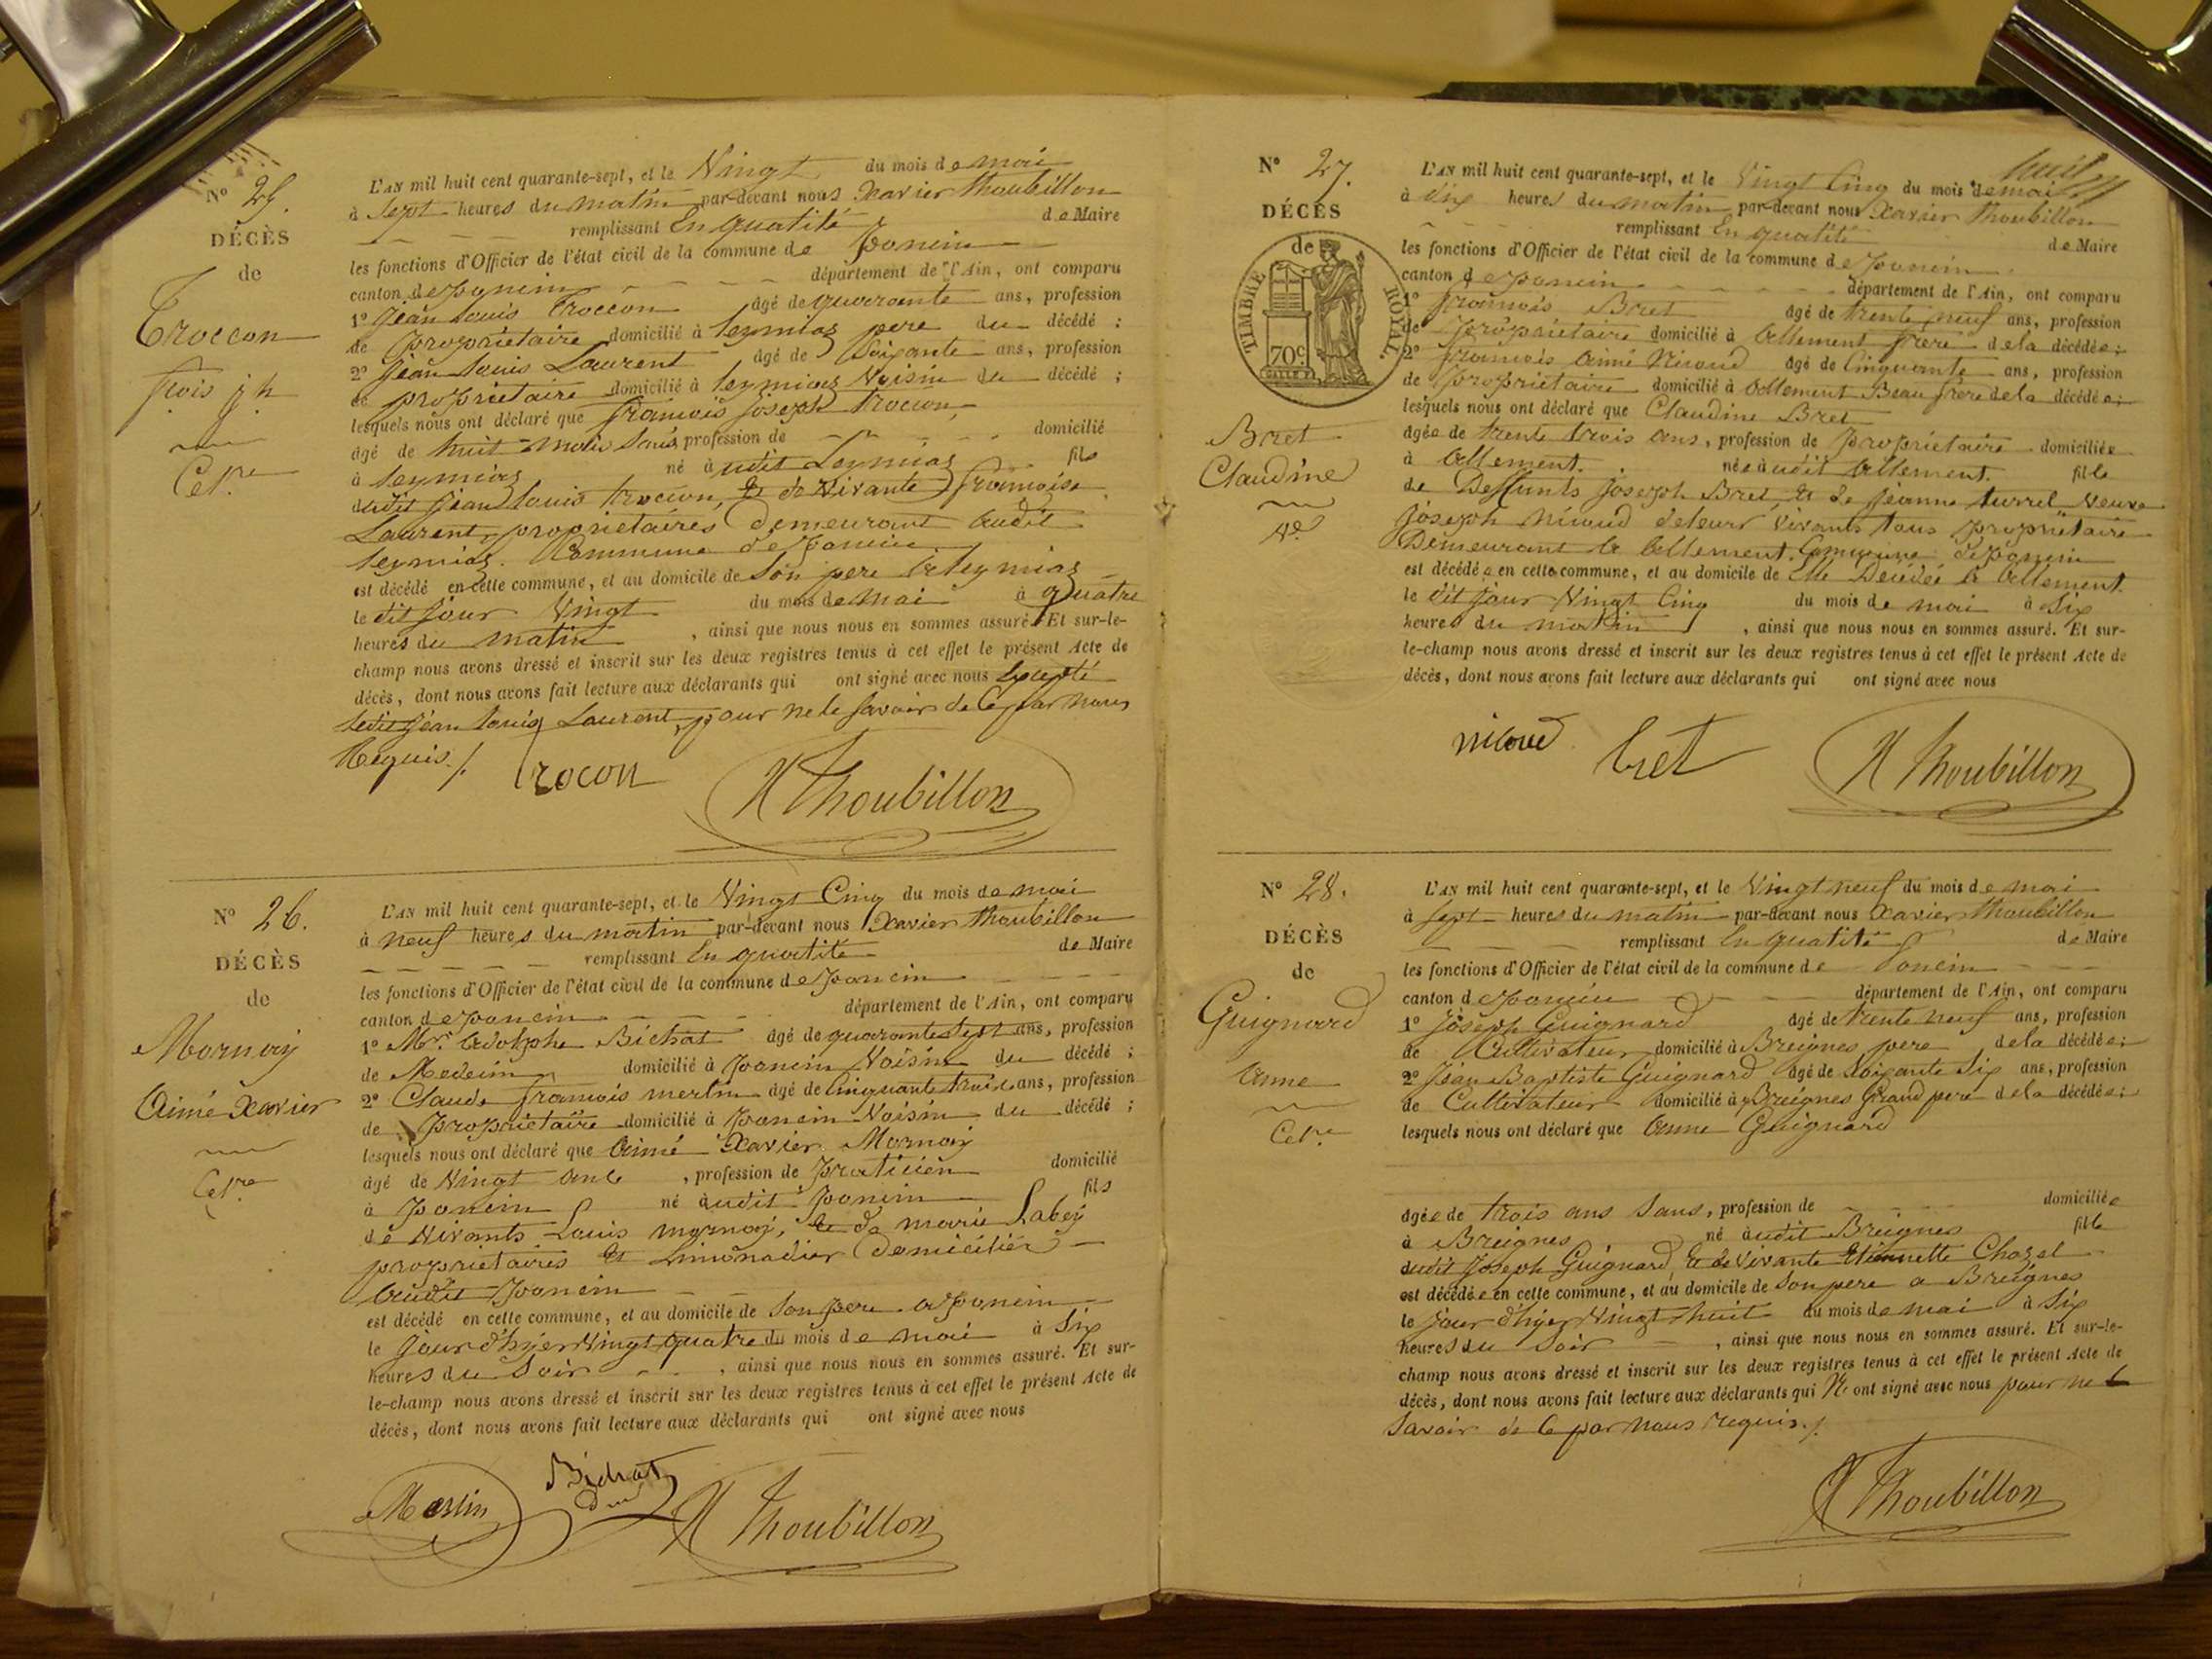 N° 25.
DÉCÈS
de
Troccon
fçois jh
Cél.re
L'AN mil huit cent quarante-sept, et le Vingt du mois de mai
à sept heures du matin par-devant nous Xavier Thoubillon
remplissant En qualité de Maire
les fonctions d'Officier de l'état civil de la commune de Poncin
canton de poncin département de l'Ain, ont comparu
1° jean Louis Troccon âgé de quarante ans, profession
de propriétaire domicilié à Leymiaz pere du décédé ;
2° jean Louis Laurent âgé de Soixante ans, profession
de propriétaire domicilié à Leymiaz Voisin du décédé ;
lesquels nous ont déclaré que françois joseph trocion,
âgé de huit mois Sans profession de domicilié
à Leymiaz né àudit Leymiaz fils
dudit jean Louis trocion, Et de Vivante françoise
Laurent, proprietaires Demeurant audit
Leymiaz. Commune de Poncin
est décédé en cette commune, et au domicile de Son pere à Leymiaz
le dit jour Vingt du mois de Mai à quatre
heures du matin, ainsi que nous nous en sommes assuré. Et sur-le-
champ nous avons dressé et inscrit sur les deux registres tenus à cet effet le présent Acte de
décès, dont nous avons fait lecture aux déclarants qui ont signé avec nous Excepté
ledit jean Louis Laurent, pour ne le Savoir de Ce par nous
Requis ./.
trocon X Thoubillon
N° 26.
DÉCÈS
de
Mornay
Aimé Xavier
Cél.re
L'AN mil huit cent quarante-sept, et le Vingt Cinq du mois de mai
à neuf heures du matin par-devant nous Xavier Thoubillon
remplissant En qualité de Maire
les fonctions d'Officier de l'état civil de la commune de Poncin
canton de poncin département de l'Ain, ont comparu
1° Mr. Adolphe Bichat âgé de quarante sept ans, profession
de Medecin domicilié à Poncin Voisin du décédé ;
2° Claude françois merlin âgé de Cinquante trois ans, profession
de Propriétaire domicilié à Poncin Voisin du décédé ;
lesquels nous ont déclaré que Aimé Xavier Mornay
âgé de Vingt ans, profession de Praticien domicilié
à Poncin né àudit Poncin fils
de Vivants Louis mornay, Et de marie Labey
proprietaires Et Limonadier Domiciliés
Audit Poncin
est décédé en cette commune, et au domicile de Son pere à Poncin
le jour d'hyer Vingt quatre du mois de mai à Six
heures du Soir, ainsi que nous nous en sommes assuré. Et sur-
le-champ nous avons dressé et inscrit sur les deux registres tenus à cet effet le présent Acte de
décès, dont nous avons fait lecture aux déclarants qui ont signé avec nous
Merlin Bichat X Thoubillon
N° 27.
DÉCÈS
de
TIMBRE ROYAL.
70c
Bret
Claudine
L'AN mil huit cent quarante-sept, et le Vingt Cinq du mois de mai
à dix heures du matin par-devant nous Xavier Thoubillon
remplissant En qualité de Maire
les fonctions d'Officier de l'état civil de la commune de Poncin
canton de poncin département de l'Ain, ont comparu
1° françois Bret âgé de trente neuf ans, profession
de Propriétaire domicilié à Allement frere de la décédée ;
2° françois Aimé Nicoud âgé de Cinquante ans, profession
de Propriétaire domicilié à Allement Beau frere de la décédée ;
lesquels nous ont déclaré que Claudine Bret
âgée de trente trois ans, profession de Propriétaire domiciliée
à Allement. née àudit Allement. fille
de Deffunts Joseph Bret, Et de jeanne turrel Veuve
joseph nicoud de leurs Vivants tous propriétaire
Demeurant à Allement. Commune de Poncin
est décédée en cette commune, et au domicile de Elle Décédée à Allement.
le dit jour Vingt Cinq du mois de mai à Six
heures du matin, ainsi que nous nous en sommes assuré. Et sur-
le-champ nous avons dressé et inscrit sur les deux registres tenus à cet effet le présent Acte de
décès, dont nous avons fait lecture aux déclarants qui ont signé avec nous
nicoud bret X Thoubillon
N° 28.
DÉCÈS
de
Guignard
Anne
Cél.re
L'AN mil huit cent quarante-sept, et le Vingt neuf du mois de mai
à Sept heures du matin par-devant nous Xavier Thoubillon
remplissant En qualité de Maire
les fonctions d'Officier de l'état civil de la commune de Poncin
canton de poncin département de l'Ain, ont comparu
1° Joseph Guignard âgé de trente neuf ans, profession
de Cultivateur domicilié à Breignes pere de la décédée ;
2° Jean Baptiste Guignard âgé de Soixante Six ans, profession
de Cultivateur domicilié à Breignes Grand pere de la décédée ;
lesquels nous ont déclaré que Anne Guignard
âgée de trois ans Sans, profession de domiciliée
à Breignes né àudit Breignes fille
dudit Joseph Guignard, Et de Vivante Etiennette Chazel
est décédée en cette commune, et au domicile de Son pere à Breignes
le jour d'hyer Vingt huit du mois de mai à Six
heures du Soir, ainsi que nous nous en sommes assuré. Et sur-le-
champ nous avons dressé et inscrit sur les deux registres tenus à cet effet le présent Acte de
décès, dont nous avons fait lecture aux déclarants qui N' ont signé avec nous pour ne le
Savoir de Ce par nous requis ./.
X Thoubillon